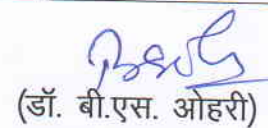 (डॉ. बी.एस. ओहरी)